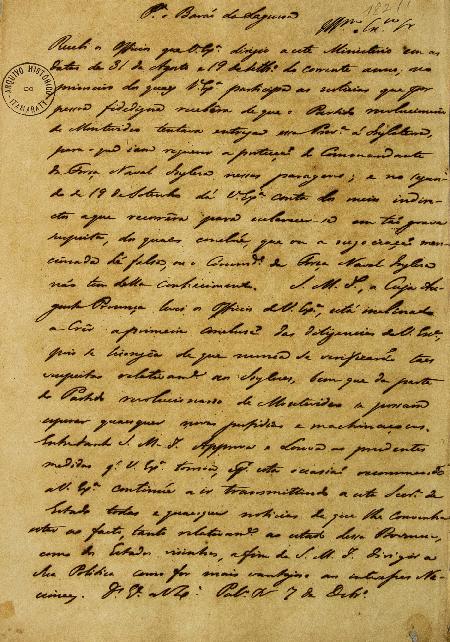 P.ª o Barão da Laguna
Ill.mo Ex.mo Sr
ARQUIVO HISTORICO
ITAMARATY
Recebi os Officios que V.Ex.ª dirigio a este Ministerio com as
datas de 31 de Agosto e 19 de Setbr.º do corrente anno; no
primeiro dos quaes V.Ex.ª participa as noticias que por
pessoa fidedigna recebêra de que o Partido revolucionario
de Montevideo tentava entregar essa Prov.ª á Inglaterra,
para o que iam requerer a protecção do Commandante
da Força Naval Ingleza nessas paragens; e no segun-
do de 19 de Setembro dá V.Ex.ª conta dos meios indire-
ctos a que recorrêra para esclarecer-se em tão grave
suspeita, dos quaes conclue, que ou a negociação men-
cionada hé falsa, ou o Command.e da Força Naval Ingleza
não tem della conhecimento. S. M. I., a Cuja Au-
gusta Presença levei os Officios de V.Ex.ª, está inclinado
a crêr a primeira conclusão das diligencias de V. Ex.ª,
pois de que nunca se verificarão taes
suspeitas relativam.e aos Inglezes, bem que da parte
do Partido revolucionario de Montevideo se possam
esperar quaesquer novas perfidias e machinações.
Entretanto S. M. I. Approva e Louva as prudentes
medidas q' V. Ex.ª tomou, e esta occasião recommenda
a V. Ex.ª continúe a ir transmittindo a este Secr.ª de
Estado todas e quaesquer noticias de que lhe convenha
estar ao facto, tanto relativam.e ao estado dessa Provincia,
como dos Estados visinhos, a fim de S. M. I. dirigir a
Sua Politica como for mais vantajoso aos interesses Na-
cionaes. D.s G.e a V.Ex.ª Pal.º 7 de Outbr.º